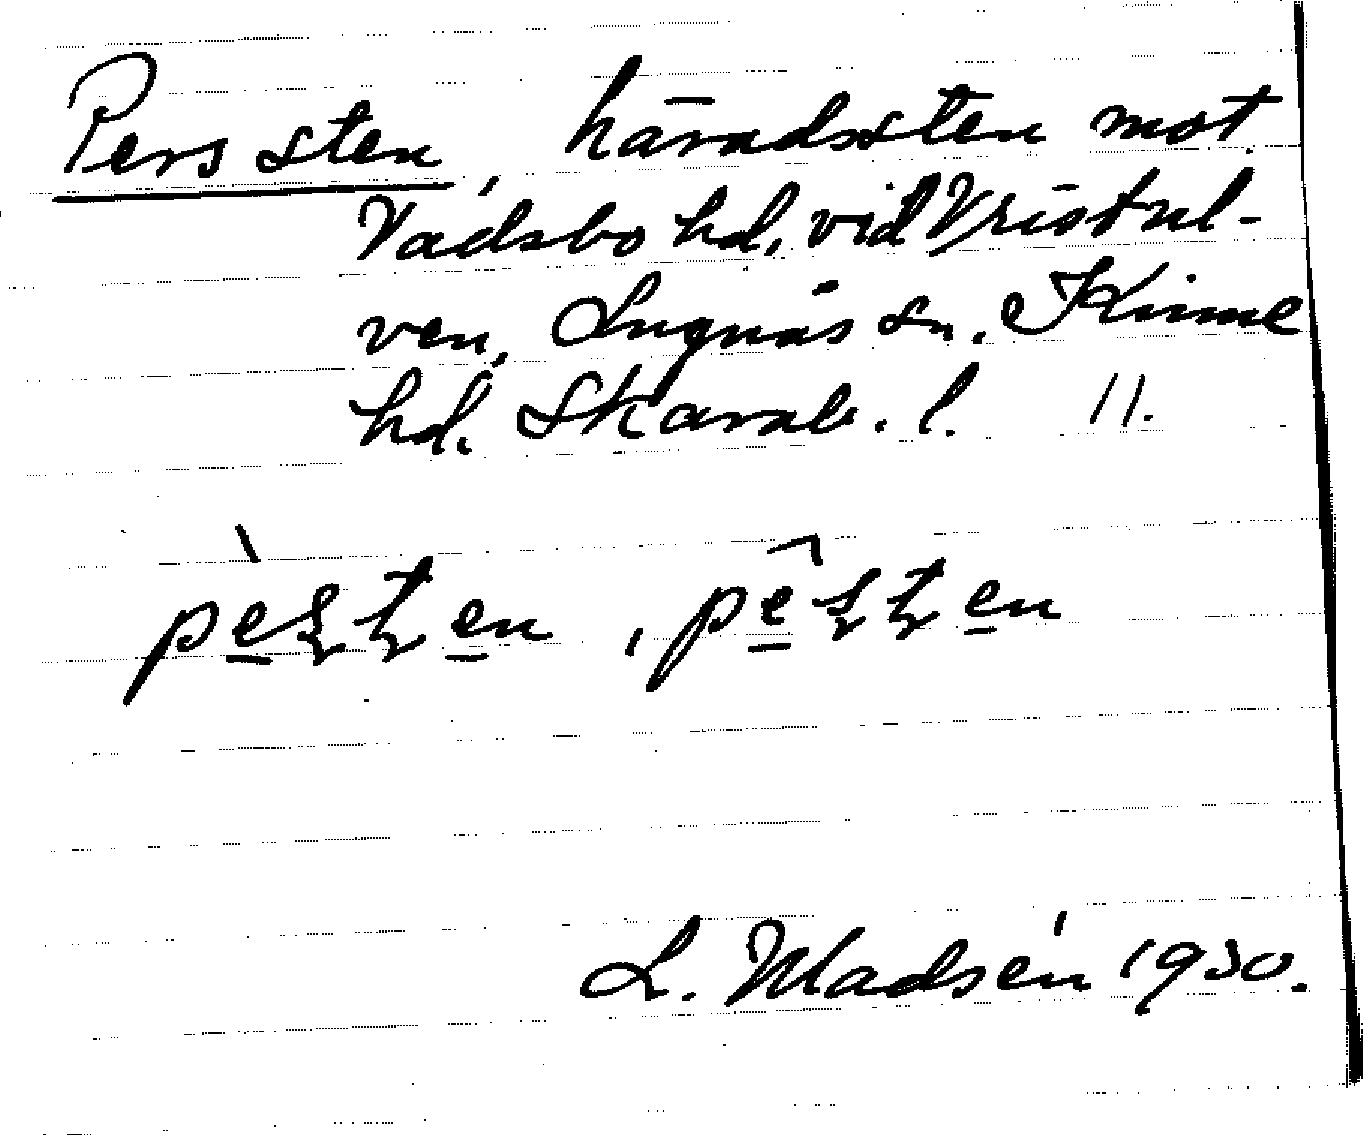 Pers sten, häradssten mot
Vadsbo hd, vid Vristul-
ven, Lugnås sn. Kinne
hd. Skarab. l. 11.
L. Madsén 1930.